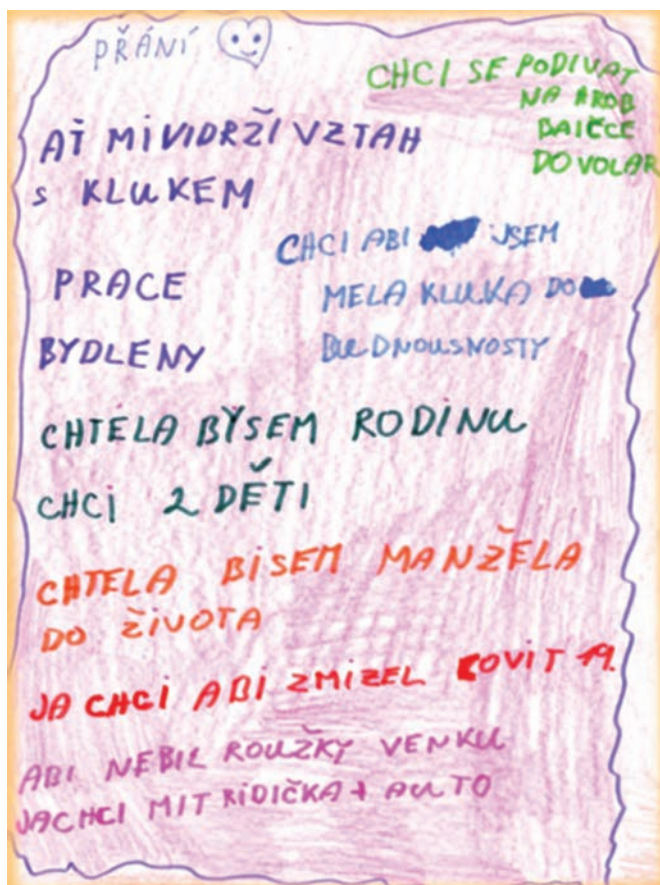 PŘÁNÍ
CHCI SE PODIVAT
NA HROB
BAIČCE
DO VOLAR
AŤ MI VIDRŽÍ VZTAH
S KLUKEM
CHCI ABI JSEM
MELA KLUKA DO
PRACE
BYDLENY
CHTELA BYSEM RODINU
CHCI 2 DĚTI
CHTELA BISEM MANŽELA
DO ŽIVOTA
JA CHCI ABI ZMIZEL COVIT 19.
ABI NEBIL ROUŽKY VENKU
JACHCI MIT RIDIČKA + AUTO